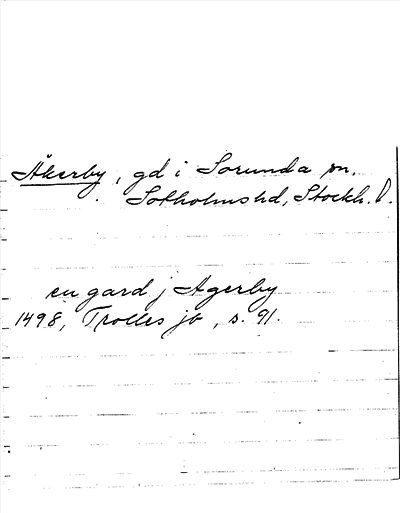 Åkerby, gd i Sorunda sn.
Sotholms hd, Stockh. l.
en gard j Agerby
1498, Trolles jb, s. 91.